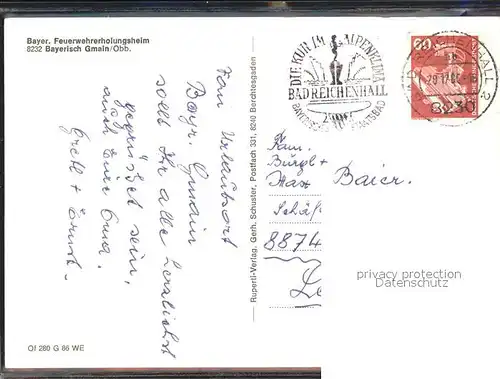 Bayer. Feuerwehrerholungsheim
8232 Bayerisch Gmain/Obb.
Vom Urlaubsort
Bayr. Gmain
sollt Ihr alle herzlichst
gegrüßt sein,
auch Eure Oma.
Gretl + Ernst.
Of 280 G 86 WE
Ruperti-Verlag, Gerh. Schuster, Postfach 331, 8240 Berchtesgaden
DIE KUR IM ALPENKLIMA
BAD REICHENHALL
BAYERISCHES STAATSBAD
60
8230
Fam.
Burgl +
Max Baier.
8874
privacy protection
DatenSCHUTZ